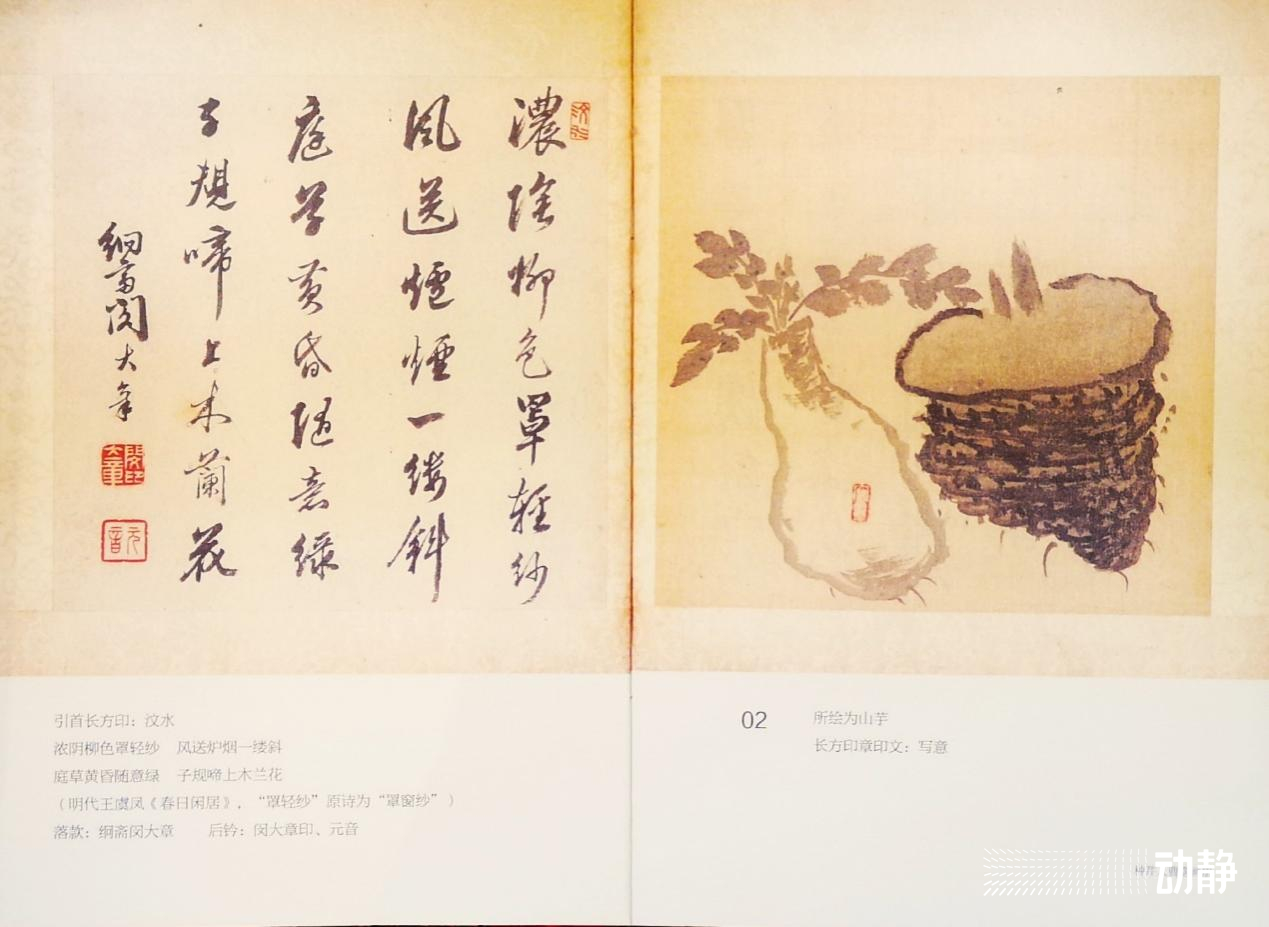 濃陰柳色罩輕紗
風送爐煙一縷斜
庭草黄昏随意緑
子規啼上木蘭花
絅齋閔大章
閔大章印
元音
引首长方印：汶水
浓阴柳色罩轻纱　风送炉烟一缕斜
庭草黄昏随意绿　子规啼上木兰花
（明代王虞凤《春日闲居》，“罩轻纱”原诗为“罩窗纱”）
落款：绸斋闵大章　　后钤：闵大章印、元音
02
所绘为山芋
长方印章印文：写意
动静